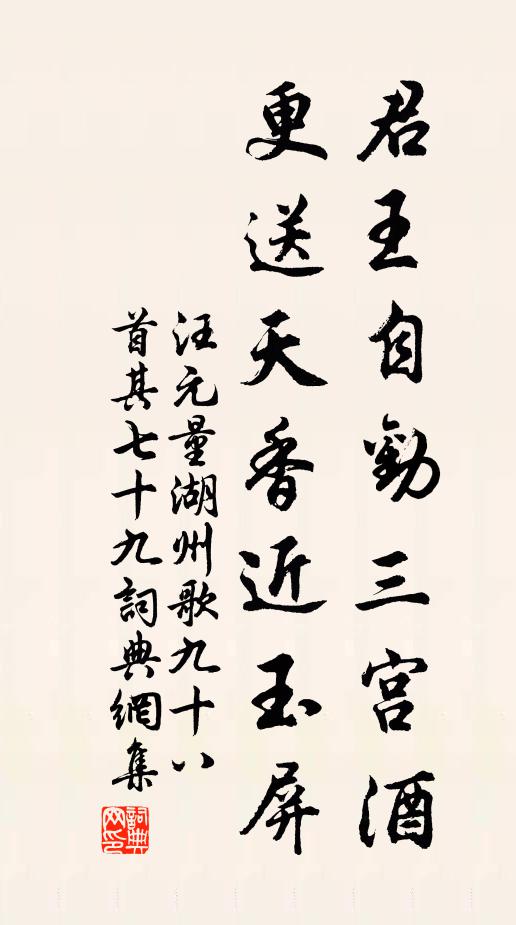 君王自勸三宮酒
更送天香近玉屏
汪元量湖州歌九十八
首其七十九詞典網集
詞典
网印